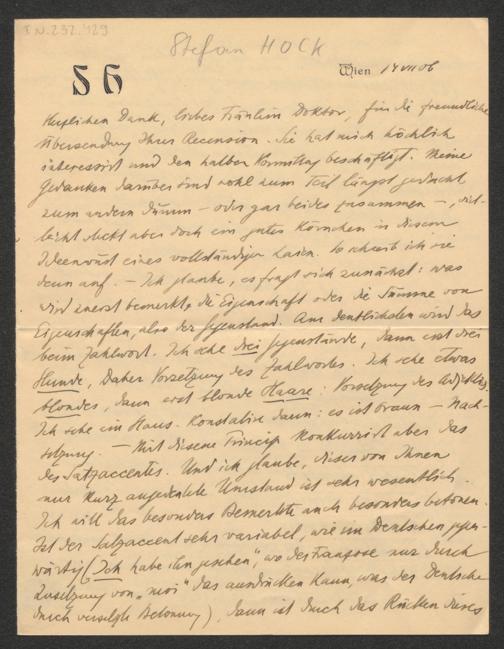 I.N. 232.429
Stefan HOCK
S H
Wien 14 VII 06
Herzlichen Dank, liebes Fräulein Doktor, für die freundliche
Übersendung Ihrer Recension. Sie hat mich höchlich
interessirt und den halben Vormittag beschäftigt. Meine
Gedanken darüber sind wohl zum Teil längst gedacht
zum andern dumm – oder gar beides zusammen –, viel-
leicht steckt aber doch ein gutes Körnchen in diesem
Ideenwust eines vollständigen Laien. So schreib ich sie
denn auf. – Ich glaube, es fragt sich zunächst: was
wird zuerst bemerkt, die Eigenschaft oder die Summe von
Eigenschaften, also der Gegenstand. Am deutlichsten wird das
beim Zahlwort. Ich sehe drei Gegenstände, dann erst drei
Hunde, Daher Vorsetzung des Zahlwortes. Ich sehe etwas
blondes, dann erst blonde Haare: Vorsetzung des Adjektivs.
Ich sehe ein Haus. Konstatire dann: es ist braun – Nach-
setzung. – Mit diesem Princip konkurrirt aber das
des Satzaccentes. Und ich glaube, dieser von Ihnen
nur kurz angedeutete Umstand ist sehr wesentlich.
Ich will das besonders Bemerkte auch besonders betonen.
Ist der Satzaccent sehr variabel, wie im Deutschen gegen-
wärtig („Ich habe ihn gesehen“, wo der Franzose nur durch
Zusetzung von „moi“ das ausdrücken kann, was der Deutsche
durch Betonung), dann ist durch das Rücken dieses